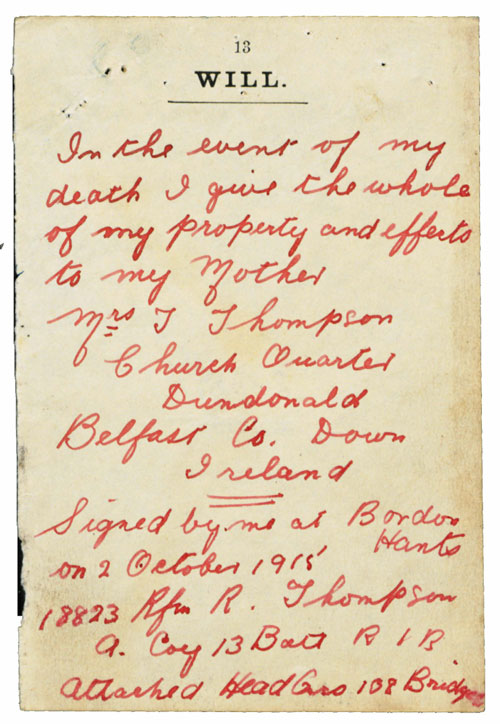 13
WILL.
In the event of my
death I give the whole
of my property and effects
to my Mother
Mrs T Thompson
Church Quarter
Dundonald
Belfast Co. Down
Ireland
Signed by me at Bordon
Hants
on 2 October 1915
18823 Rfm R. Thompson
A. Coy 13 Batt R I R
Attached Head Qrs 108 Bridge